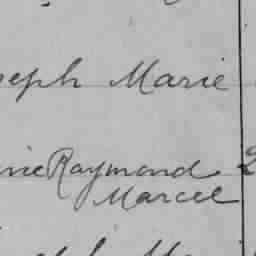 seph Marie
rie Raymond 2
Marcel